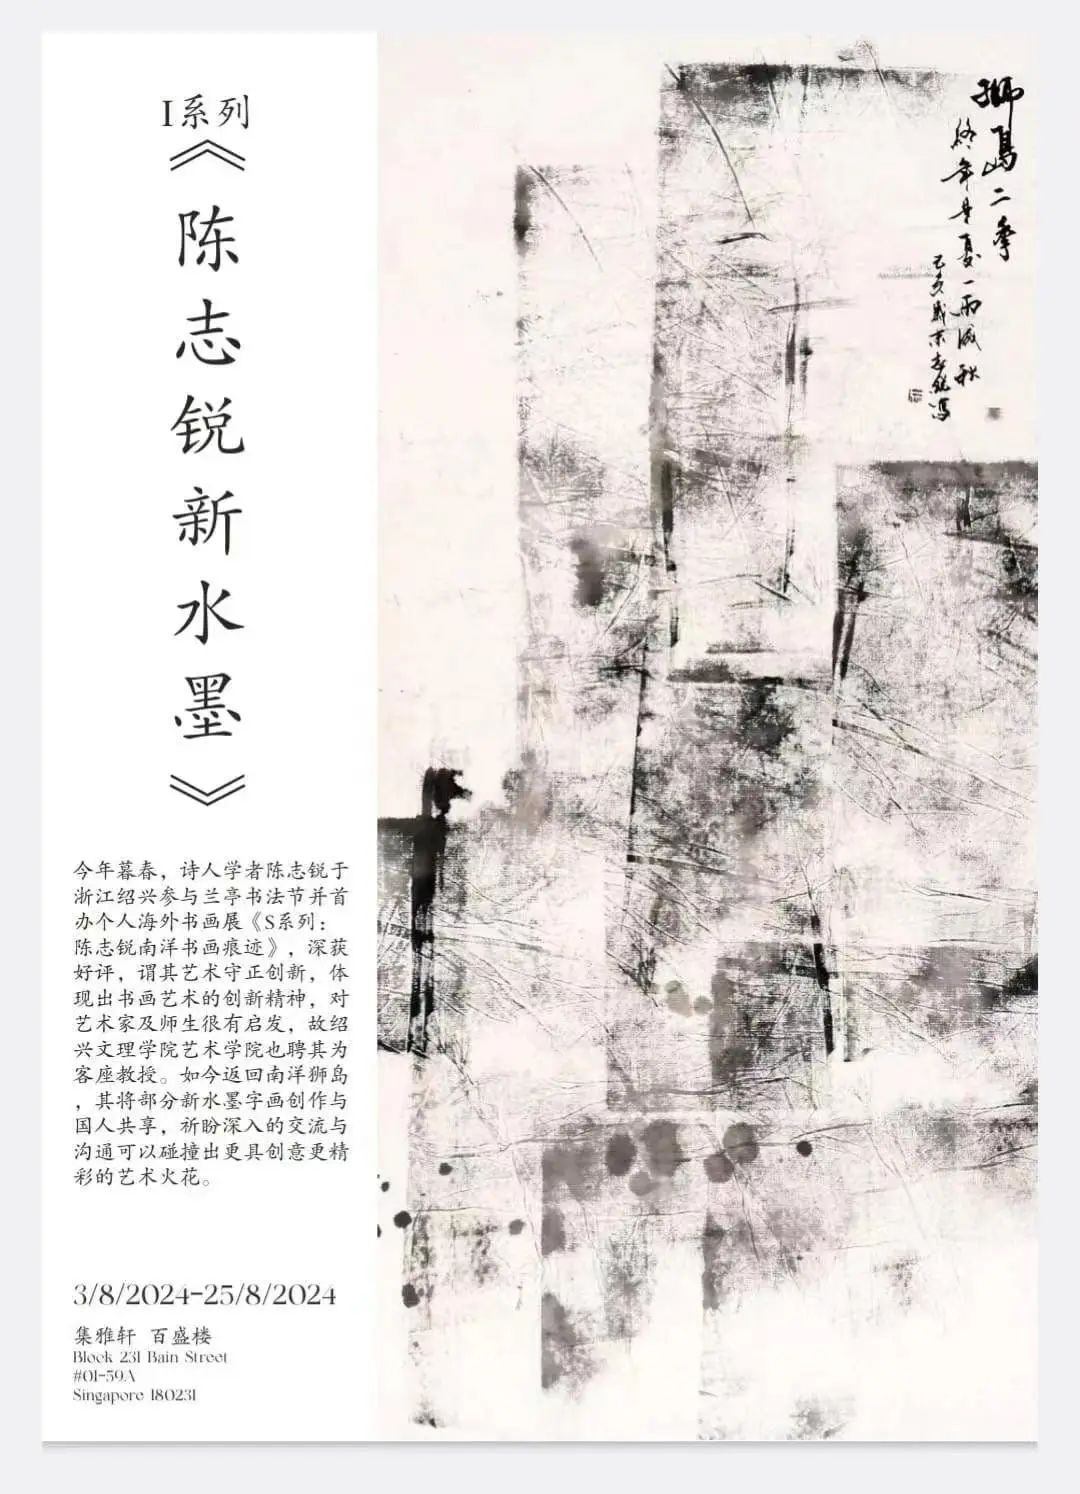 I系列
《陈志锐新水墨》
今年暮春，诗人学者陈志锐于
浙江绍兴参与兰亭书法节并首
办个人海外书画展《S系列：
陈志锐南洋书画痕迹》，深获
好评，谓其艺术守正创新，体
现出书画艺术的创新精神，对
艺术家及师生很有启发，故绍
兴文理学院艺术学院也聘其为
客座教授。如今返回南洋狮岛
，其将部分新水墨字画创作与
国人共享，祈盼深入的交流与
沟通可以碰撞出更具创意更精
彩的艺术火花。
3/8/2024-25/8/2024
集雅轩 百盛楼
Block 231 Bain Street
#01-59A
Singapore 180231
獅島二季
終年是夏一雨成秋
己亥歲末志銳寫